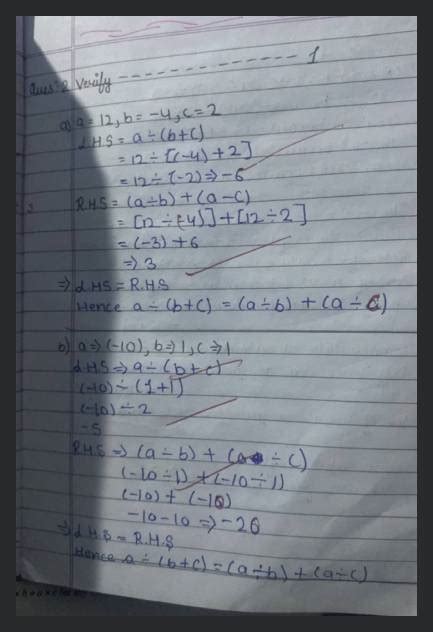 Ques: 2 Verify -------------- 1
a) a = 12, b = -4, c = 2
LHS = a ÷ (b+c)
= 12 ÷ [(-4) + 2]
= 12 ÷ (-2) ⇒ -6
RHS = (a÷b) + (a-c)
= [12 ÷ (-4)] + [12 ÷ 2]
= (-3) + 6
⇒ 3
⇒ LHS = R.H.S
Hence a ÷ (b+c) = (a÷b) + (a÷c)
b) a ⇒ (-10), b ⇒ 1, c ⇒ 1
LHS ⇒ a ÷ (b+c)
(-10) ÷ (1+1)
(-10) ÷ 2
-5
RHS ⇒ (a÷b) + (a ÷ c)
(-10÷1) + (-10÷1)
(-10) + (-10)
-10-10 ⇒ -20
⇒ LHS = R.H.S
Hence a ÷ (b+c) = (a÷b) + (a÷c)